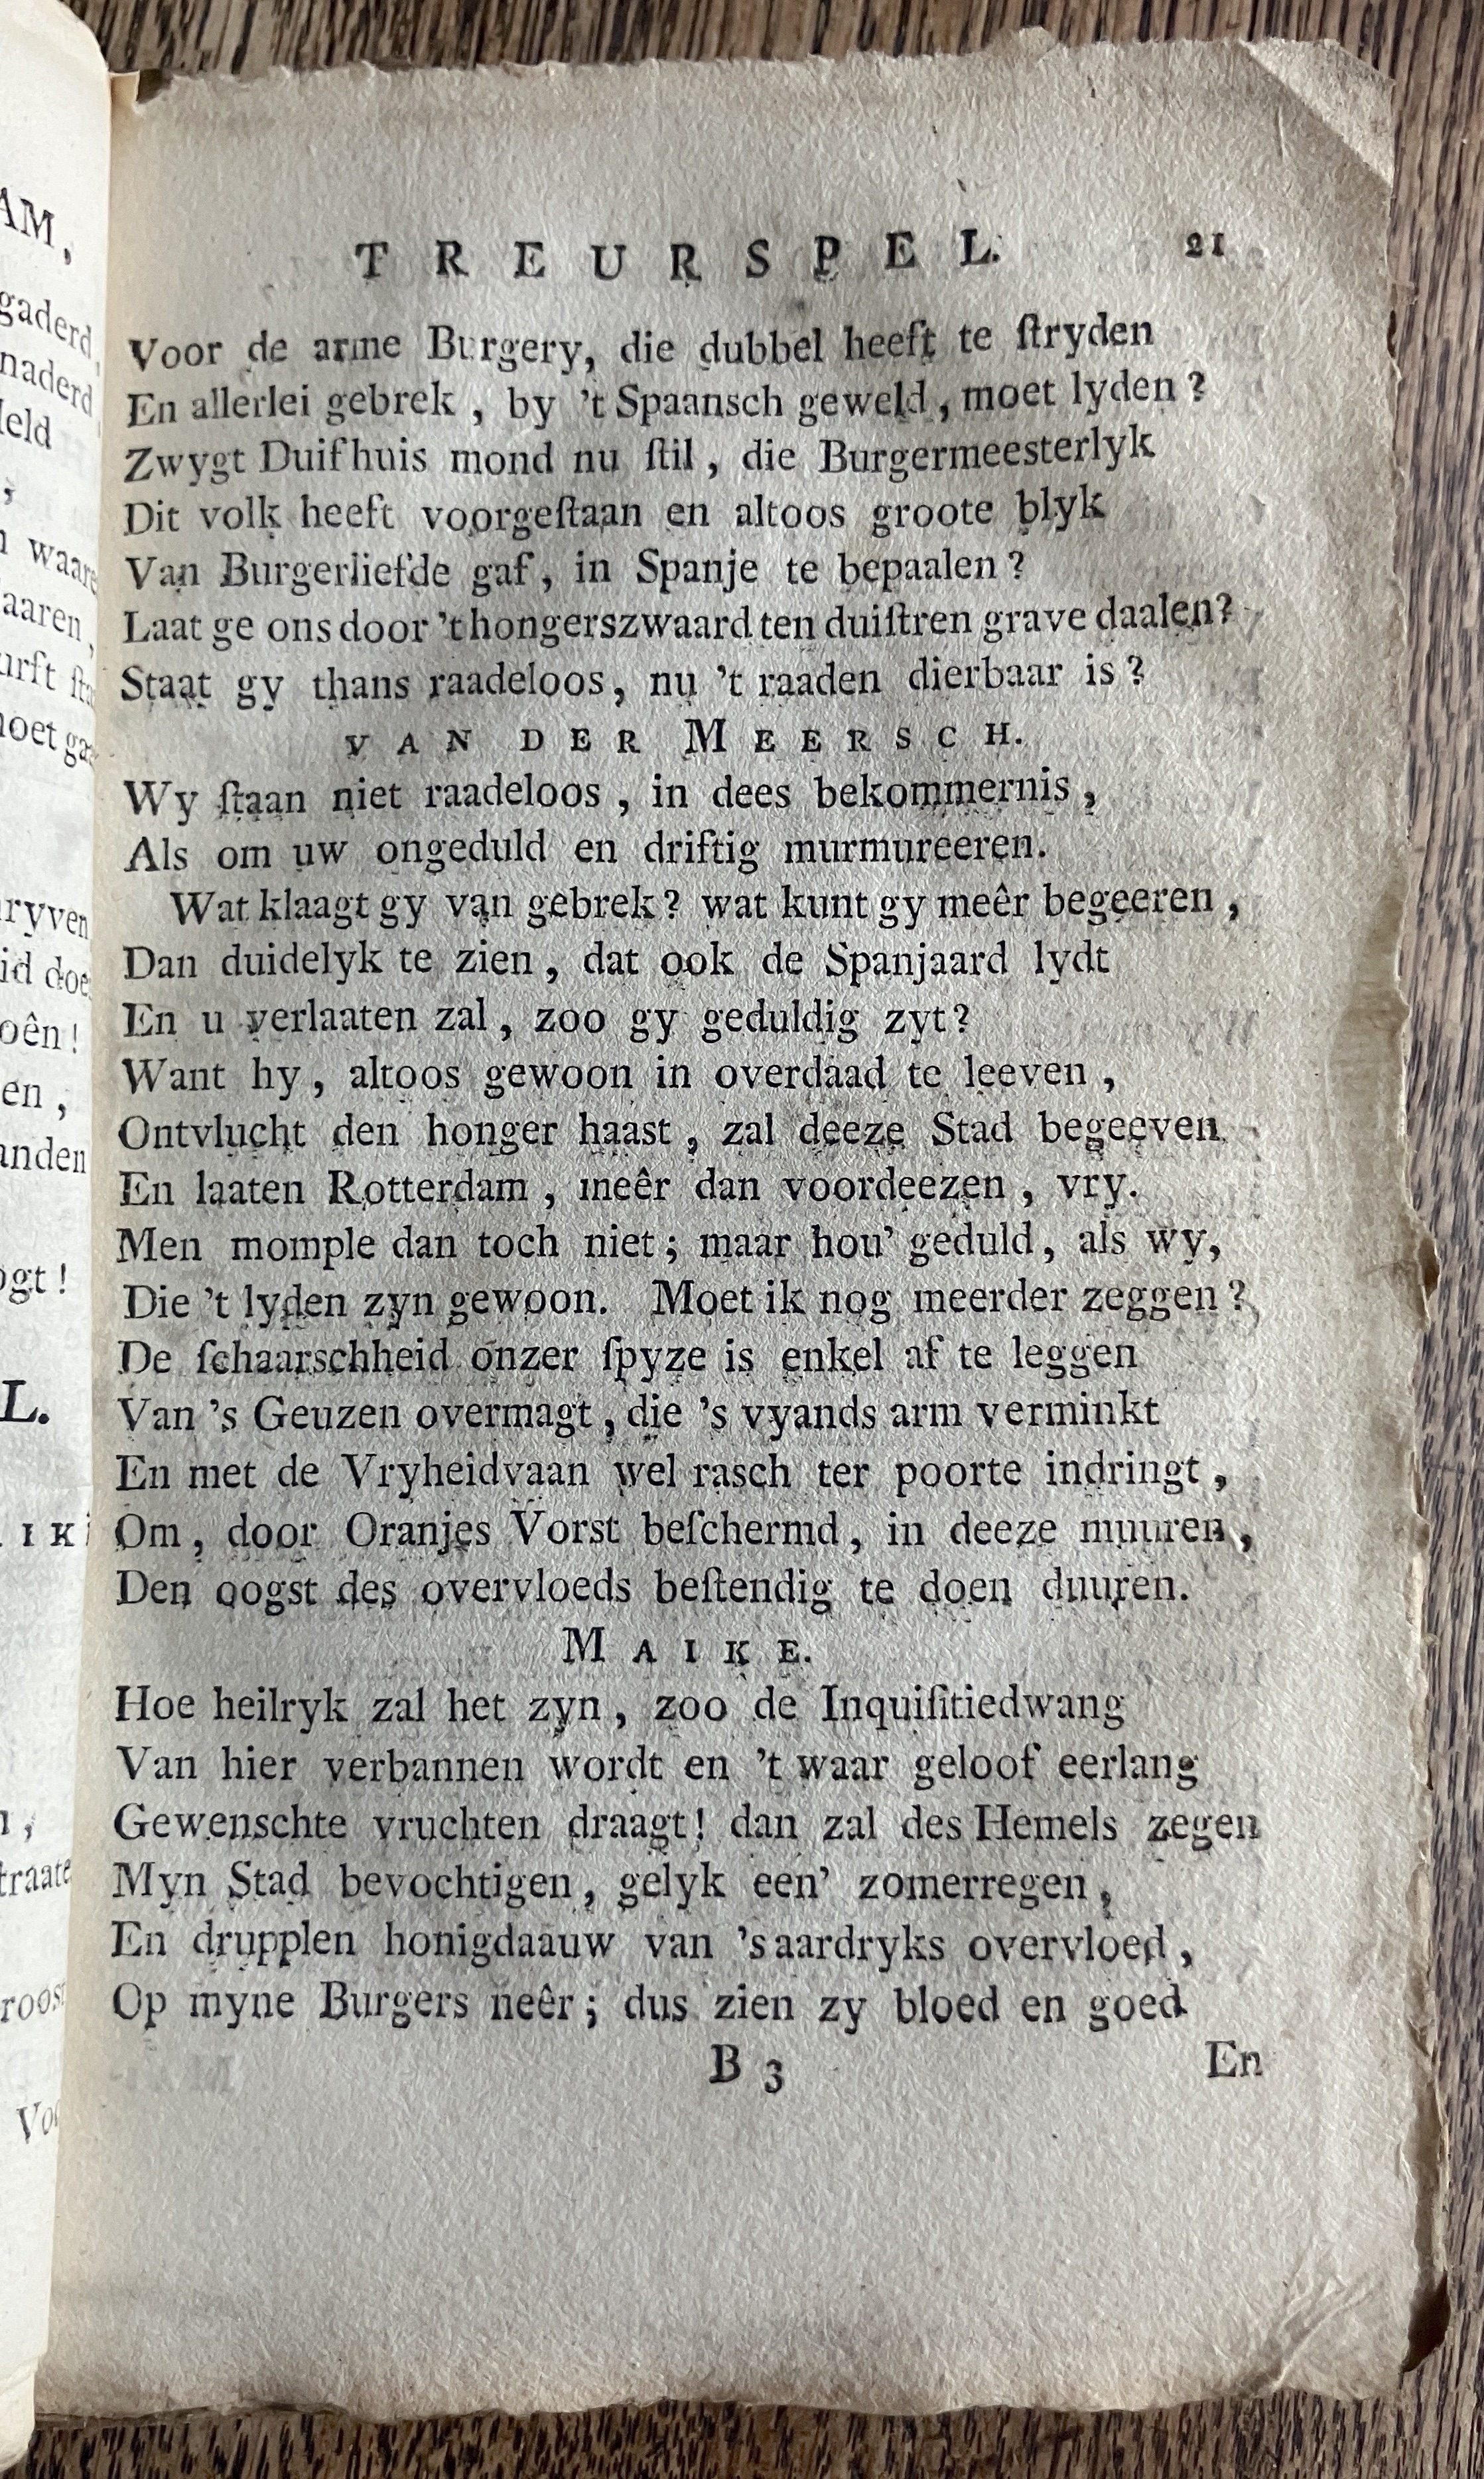 TREURSPEL. 21
Voor de arme Burgery, die dubbel heeft te ſtryden
En allerlei gebrek, by 't Spaansch geweld, moet lyden?
Zwygt Duifhuis mond nu ſtil, die Burgermeesterlyk
Dit volk heeft voorgeſtaan en altoos groote blyk
Van Burgerliefde gaf, in Spanje te bepaalen?
Laat ge ons door 't hongerszwaard ten duiſtren grave daalen?
Staat gy thans raadeloos, nu 't raaden dierbaar is?
VAN DER MEERSCH.
Wy ſtaan niet raadeloos, in dees bekommernis,
Als om uw ongeduld en driftig murmureeren.
Wat klaagt gy van gebrek? wat kunt gy meêr begeeren,
Dan duidelyk te zien, dat ook de Spanjaard lydt
En u verlaaten zal, zoo gy geduldig zyt?
Want hy, altoos gewoon in overdaad te leeven,
Ontvlucht den honger haast, zal deeze Stad begeeven
En laaten Rotterdam, meêr dan voordeezen, vry.
Men momple dan toch niet; maar hou' geduld, als wy,
Die 't lyden zyn gewoon. Moet ik nog meerder zeggen?
De ſchaarschheid onzer ſpyze is enkel af te leggen
Van 's Geuzen overmagt, die 's vyands arm verminkt
En met de Vryheidvaan wel rasch ter poorte indringt,
Om, door Oranjes Vorst beſchermd, in deeze muuren,
Den oogst des overvloeds beſtendig te doen duuren.
MAIKE.
Hoe heilryk zal het zyn, zoo de Inquiſitiedwang
Van hier verbannen wordt en 't waar geloof eerlang
Gewenschte vruchten draagt! dan zal des Hemels zegen
Myn Stad bevochtigen, gelyk een' zomerregen,
En drupplen honigdaauw van 's aardryks overvloed,
Op myne Burgers neêr; dus zien zy bloed en goed
B 3 En